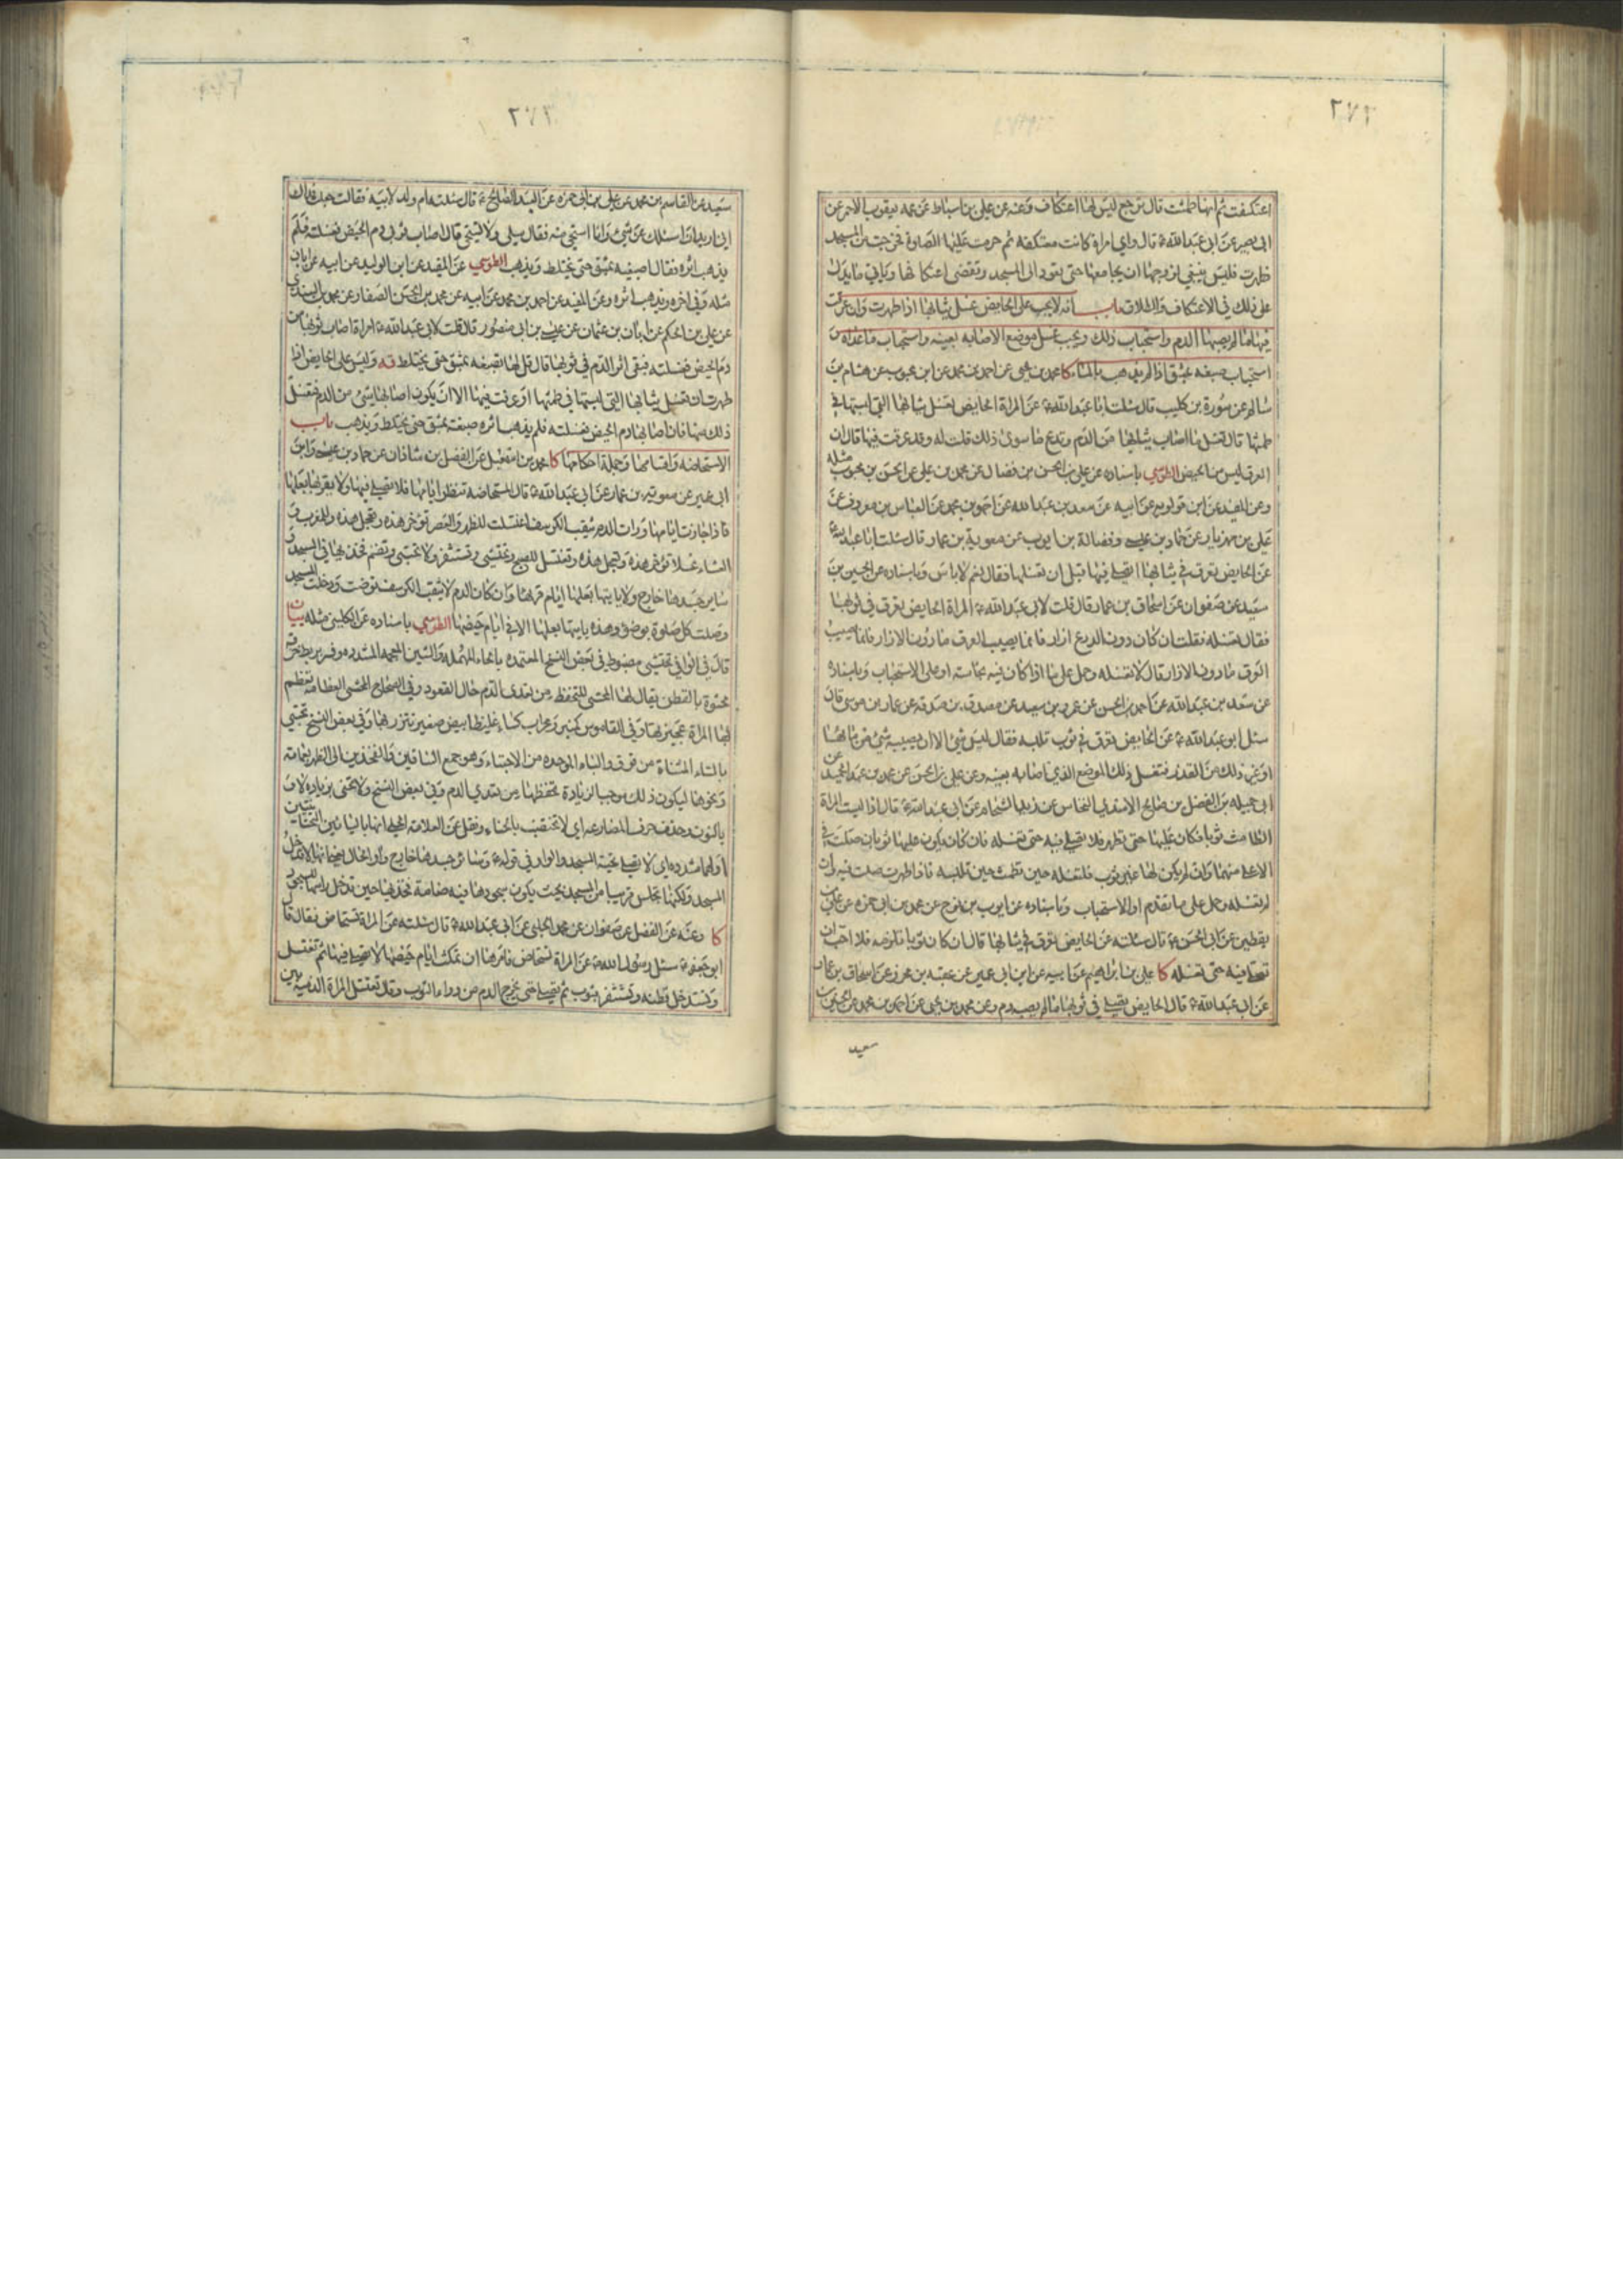 ٢٧٢
اعتكفت ثم انها طمثت قال ترجع ليس لها اعتكاف وعنه عن علي بن اسباط عن عمه يعقوب الاحمر عن
ابى بصير عن ابى عبدالله ع قال واي امراة كانت معتكفة ثم حرمت عليها الصلوة فخرجت من المسجد
فطهرت فليس ينبغي لزوجها ان يجامعها حتى تعود الى المسجد وتقضى اعتكافها وياتي ما يدل
على ذلك في الاعتكاف والطلاق باب انه لا يجب على الحايض غسل ثيابها اذا طهرت وان عرقت
فيها ما لم يصبها الدم واستحباب ذلك ويجب غسل موضع الاصابة بعينه واستحباب ما عداه و
استحباب صبغه بمشق اذا لم يذهب بالماء كا محمد بن يحيى عن احمد بن محمد عن ابن محبوب عن هشام بن
سالم عن سورة بن كليب قال سئلت ابا عبدالله ع عن المراة الحايض اتغسل ثيابها التي لبستها في
طمثها قال تغسل ما اصاب ثيابها من الدم وتدع ما سوى ذلك قلت له وقد عرقت فيها قال ان
العرق ليس من الحيض الطوسي باسناده عن علي بن الحسن بن فضال عن محمد بن علي عن الحسن بن محبوب مثله
وعن المفيد عن ابن قولويه عن ابيه عن سعد بن عبدالله عن احمد بن محمد عن العباس بن معروف عن
علي بن مهزيار عن حماد بن عيسى وفضالة بن ايوب عن معوية بن عمار قال سئلت ابا عبدالله ع
عن الحايض تعرق في ثيابها اتصلي فيها قبل ان تغسلها فقال نعم لا باس وباسناده عن الحسين بن
سعيد عن صفوان عن اسحاق بن عمار قال قلت لابى عبدالله ع المراة الحايض تعرق في ثوبها
فقال تغسله فقلت ان كان دون الدرع ازار فانما يصيب العرق ما دون الازار فانما يصيب
العرق ما دون الازار قال لا تغسله وحمل على ما اذا كان فيه نجاسة او على الاستحباب وباسناده
عن سعد بن عبدالله عن احمد بن الحسن عن عمرو بن سعيد عن مصدق بن صدقه عن عمار بن موسى قال
سئل ابو عبدالله ع عن الحايض تعرق في ثوب تلبسه فقال ليس شئ الا ان يصيبه شئ من مائها
او غير ذلك من القذر فتغسل ذلك الموضع الذي اصابه بعينه وعن علي بن الحسن عن محمد بن عبد الحميد عن
ابى جميله بن الفضل بن صالح الاسدي النخاس عن زيد الشحام عن ابى عبدالله ع قال اذا لبست المراة
الطامث ثوبا فكان عليها حتى تطهر فلا تصلي فيه حتى تغسله فان كان يكون عليها ثوبان صلت في
الاعلى منهما وان لم يكن لها غير ثوب فلتغسله حين تطمث حين تلبسه فاذا طهرت صلت فيه وان
لم تغسله وحمل على ما تقدم او الاستحباب وباسناده عن ايوب بن نوح عن محمد بن ابى حمزه عن علي بن
يقطين عن ابى الحسن ع قال سئلته عن الحايض تعرق في ثيابها قال ان كان ثوبا تلزمه فلا احب ان
تصلي فيه حتى تغسله كا علي بن ابراهيم عن ابيه عن ابن ابى عمير عن عقبه بن محرز عن اسحاق بن عمار
عن ابى عبدالله ع قال الحايض تصلي في ثوبها ما لم يصبه دم وعن محمد بن يحيى عن احمد بن محمد عن الحسين بن
سعيد
سعيد عن القاسم بن محمد عن علي بن ابى حمزه عن العبد الصالح ع قال سئلته ام ولد لابيه فقالت جعلت فداك
انى اريد ان اسئلك عن شئ وانا استحى منه فقال سلي ولا تستحي قال اصاب ثوبى دم الحيض فغسلته فلم
يذهب اثره فقال اصبغيه بمشق حتى يختلط ويذهب الطوسي عن المفيد عن ابن الوليد عن ابيه عن ابان
مثله وفي اخره ويذهب اثره وعن المفيد عن احمد بن محمد عن ابيه عن محمد بن الحسن الصفار عن محمد بن السندي
عن علي بن الحكم عن ابان بن عثمان عن عيسى بن ابى منصور قال قلت لابى عبدالله ع امراة اصاب ثوبها من
دم الحيض فغسلته فبقى اثر الدم في ثوبها قال قل لها تصبغه بمشق حتى يختلط فه وليس على الحايض اذا
طهرت ان تغسل ثيابها التى لبستها في طمثها او عرقت فيها الا ان يكون اصابها شئ من الدم فتغسل
ذلك منها فان اصابها دم الحيض فغسلته فلم يذهب اثره صبغته بمشق حتى يختلط ويذهب باب
الاستحاضه واقسامها وجملة احكامها كا محمد بن اسمعيل عن الفضل بن شاذان عن حماد بن عيسى وابن
ابى عمير عن معوية بن عمار عن ابى عبدالله ع قال المستحاضه تنظر ايامها فلا تصلي فيها ولا يقربها بعلها
فاذا جازت ايامها ورات الدم يثقب الكرسف اغتسلت للظهر والعصر تؤخر هذه وتعجل هذه وللمغرب و
العشاء غسلا تؤخر هذه وتعجل هذه وتغتسل للصبح وتحتشى وتستثفر ولا تحتبى وتضم فخذيها في المسجد و
ساير جسدها خارج ولا ياتيها بعلها ايام قرئها وان كان الدم لا يثقب الكرسف توضت ودخلت المسجد
وصلت كل صلوة بوضوء وهذه ياتيها بعلها الا في ايام حيضها الطوسي باسناده عن الكليني مثله بيان
قال في الوافي تحتشى مضبوط في بعض النسخ المعتمده بالحاء المهمله والشين المعجمه المشدده وفسر بربط خرقة
محشوة بالقطن يقال لها المحشى للتحفظ من تعدى الدم حال القعود وفي الصحاح المحشى العظامه تعظم
بها المراة عجيزتها وفي القاموس كمنبر ومحراب كساء غليظ ابيض صغير يتزر بها وفي بعض النسخ تحتبى
بالتاء المثناة من فوق والباء الموحده من الاحتباء وهو جمع الساقين والفخذين الى الظهر بعمامة
ونحوها ليكون ذلك موجبا لزيادة تحفظها من تعدي الدم وفي بعض النسخ ولا تحنى بزيادة لا و
بالنون وحذف حرف المضارعه اي لا تختضب بالحناء ونقل عن العلامة الحلي انها بالياءين التحتانيتين
اولهما مشدده اي لا تصلي تحية المسجد والواو في قوله ع وساير جسدها خارج واو الحال يعنى انها لا تدخل
المسجد ولكنها تجلس قريبا من المسجد بحيث يكون سجودها فيه ضامة فخذيها حين تدخل راسها للسجود
كا وعنه عن الفضل عن صفوان عن محمد الحلبى عن ابى عبدالله ع قال سئلته عن المراة تستحاض فقال قال
ابو جعفر ع سئل رسول الله ص عن المراة تستحاض فامرها ان تمكث ايام حيضها لا تصلي فيها ثم تغتسل
وتستدخل قطنه وتستثفر بثوب ثم تصلي حتى يخرج الدم من وراء الثوب وقال تغتسل المراة الدمية بين